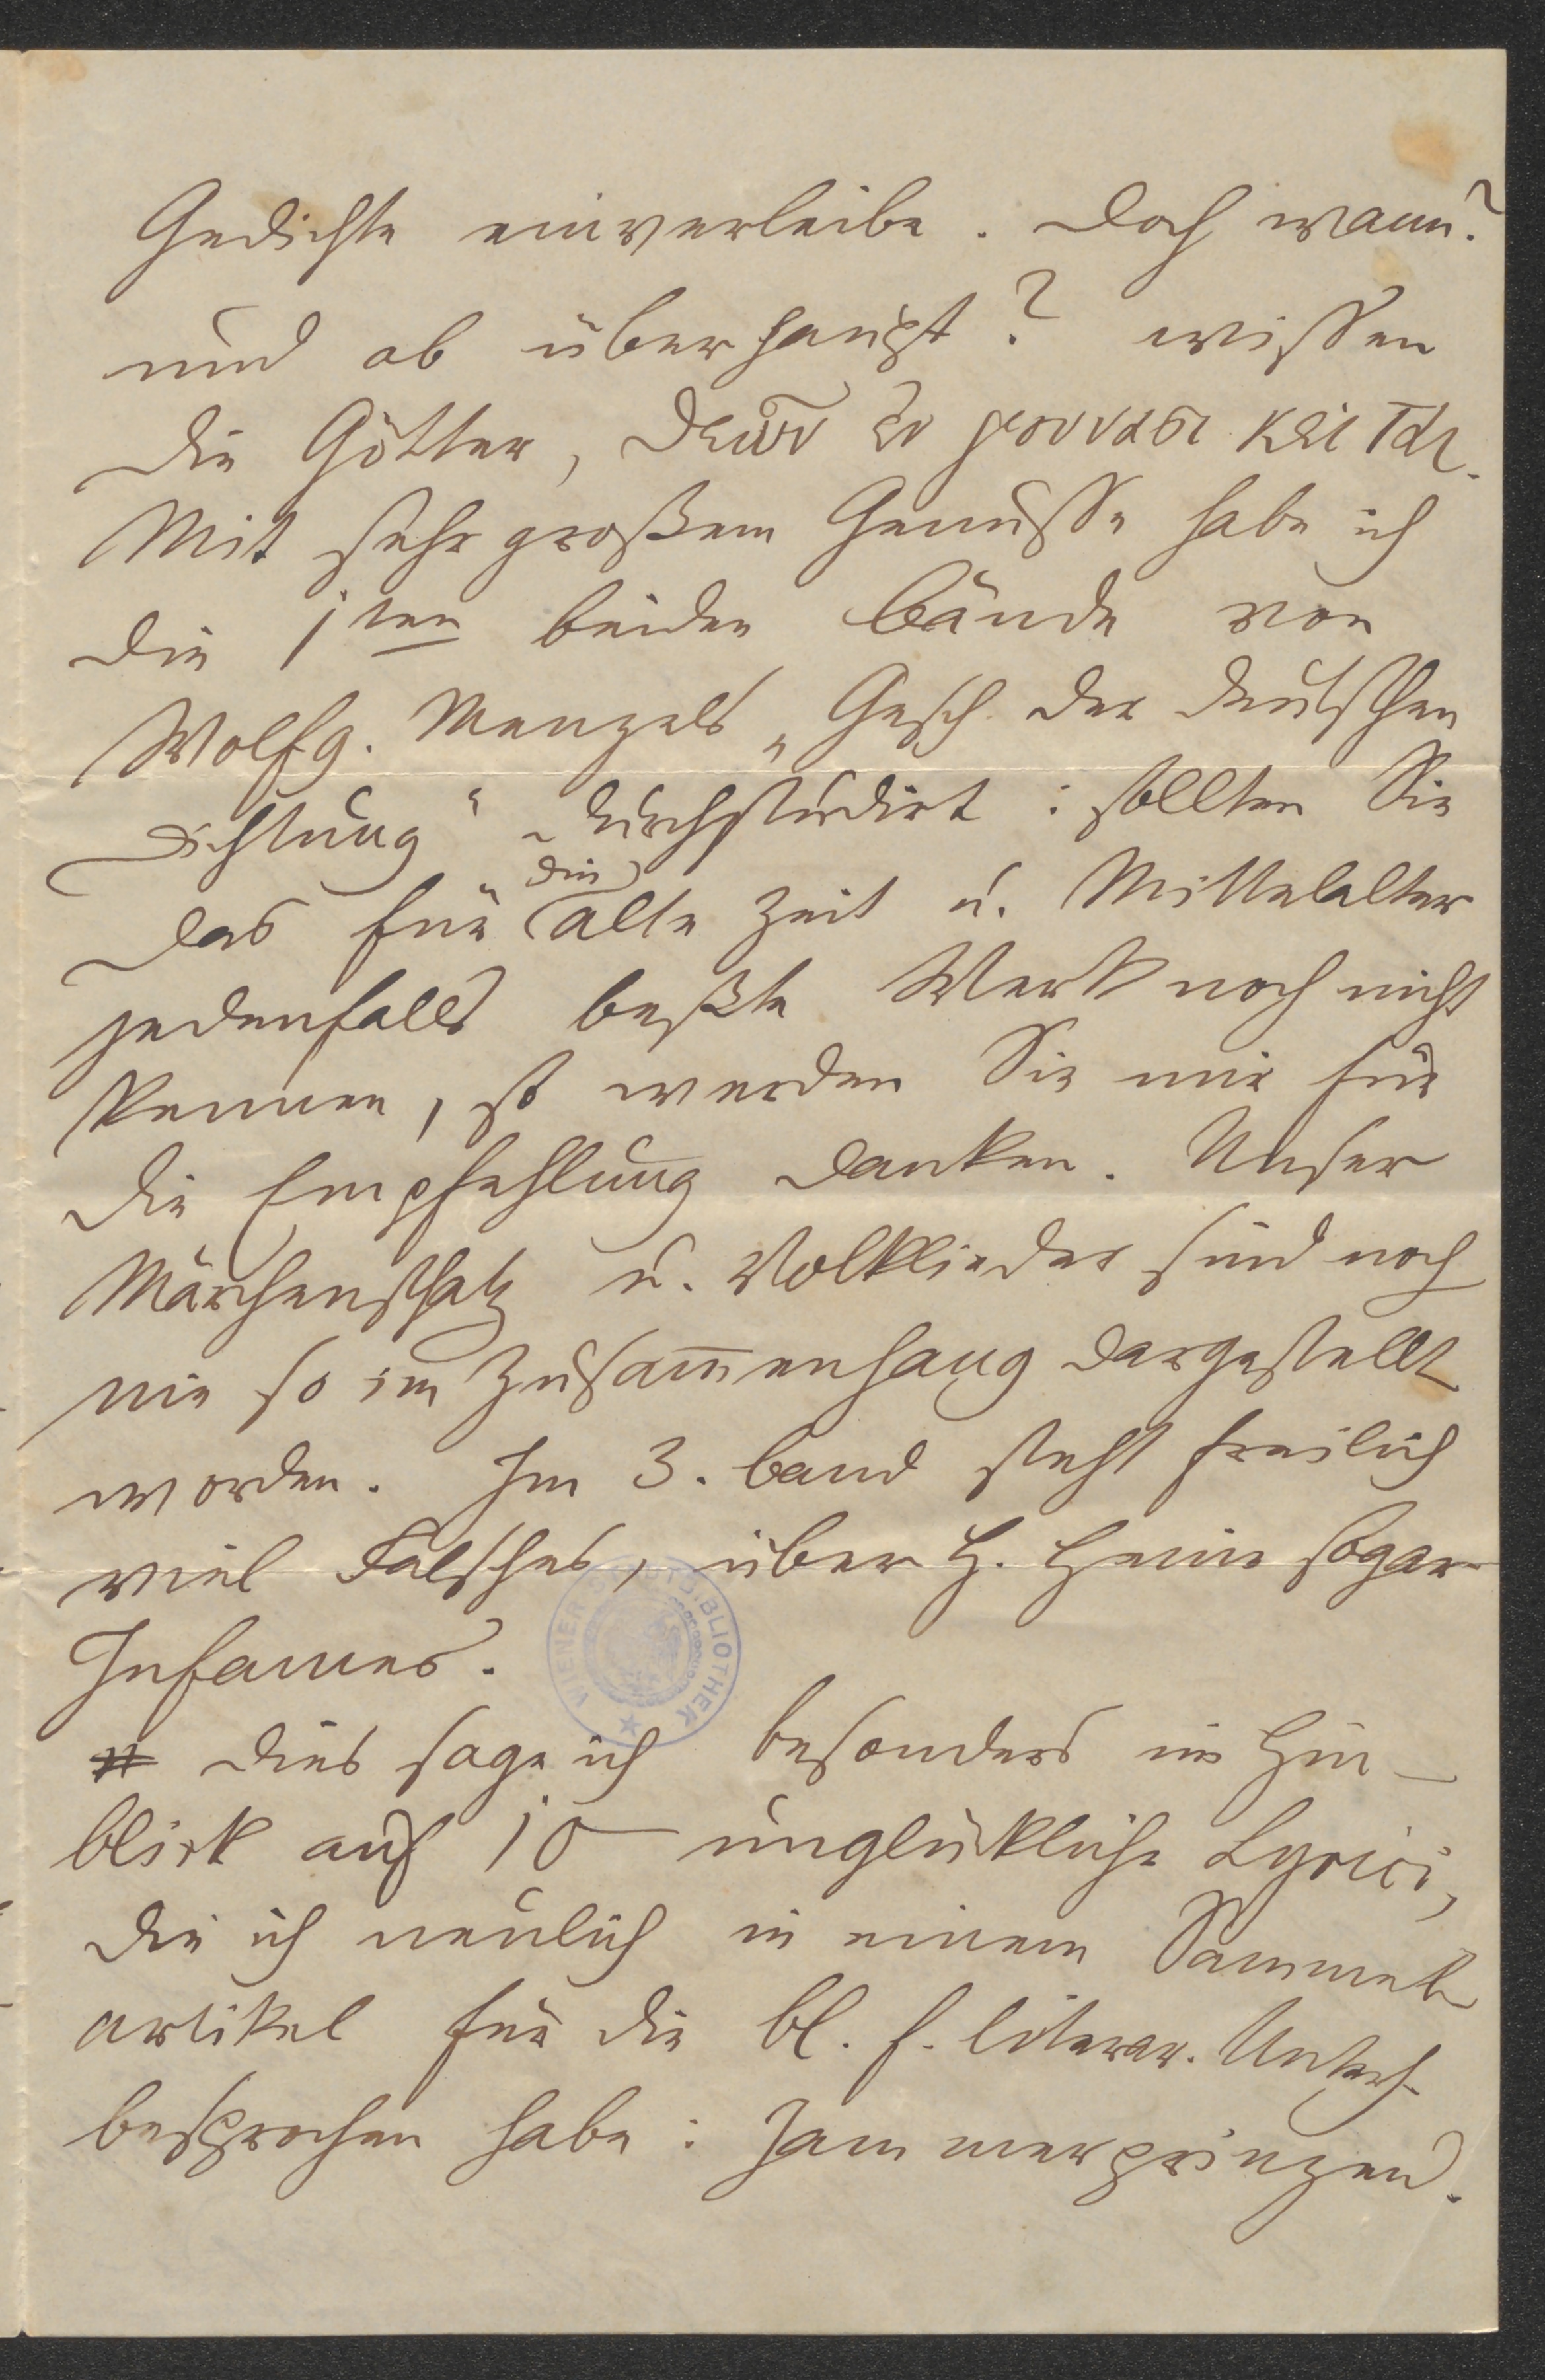 Gedichte einverleibe. Doch wann?
und ob überhaupt? wissen
die Götter, θεῶν ἐν γούνασι κεῖται.
Mit sehr großem Genusse habe ich
die 1ten beiden Bände von
Wolfg. Menzels „Gesch der deutschen
Dichtung“ durchstudirt: sollten Sie
das für die alte Zeit u. Mittelalter
jedenfalls beßte Werk noch nicht
kennen, so werden Sie mir für
die Empfehlung danken. Unser
Märchenschatz u. Volkslieder sind noch
nie so im Zusam̅enhang dargestellt
worden. Im 3. Band steht freilich
viel Falsches, über H. Heine sogar
Infames.
WIENER STADTBIBLIOTHEK
dies sage ich besonders im Hin-
blick auf 10 unglückliche Lyrici,
die ich neulich in einem Sammel
artikel für die Bl. f. literar. Unterh.
besprochen habe: Jammerprinzen.